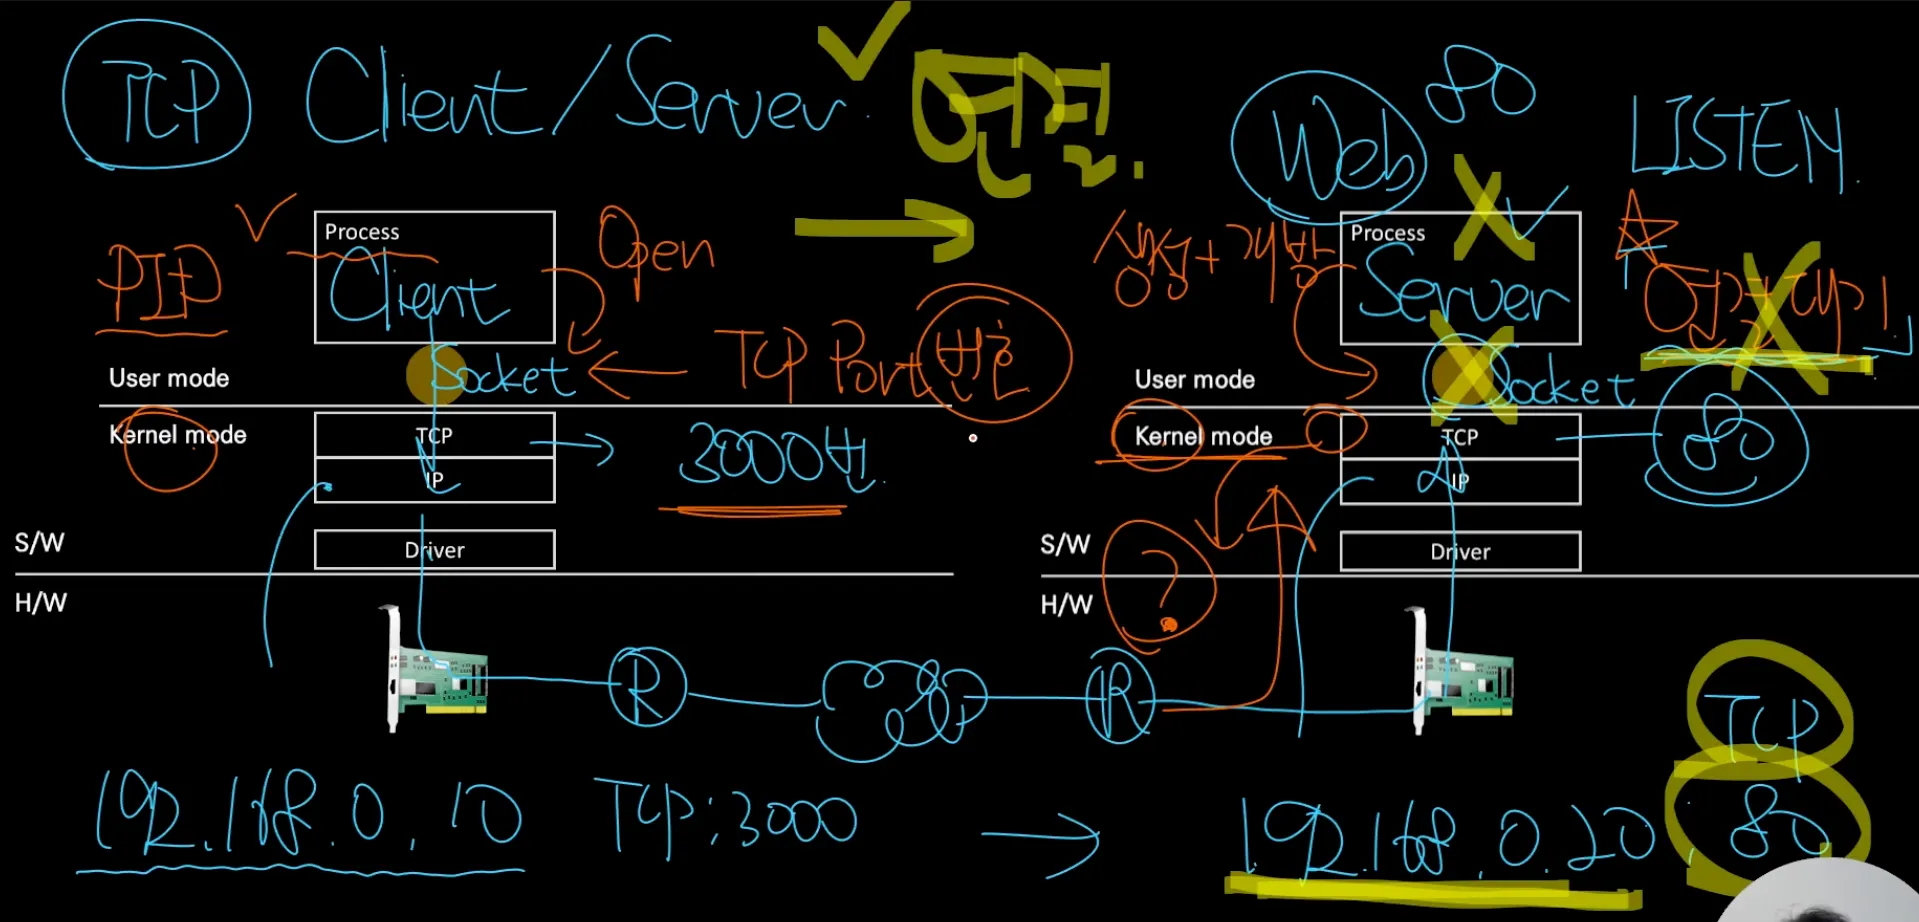 TCP Client/Server. 연결.
Web 80 LISTEN.
PID
Process
Client
Open
Socket
TCP Port 번호
User mode
Kernel mode
TCP
IP
3000번.
S/W
Driver
H/W
Process
Server
Socket
User mode
Kernel mode
TCP
IP
80
S/W
Driver
H/W
?
R
R
TCP
192.168.0.10 TCP:3000
192.168.0.20, 80